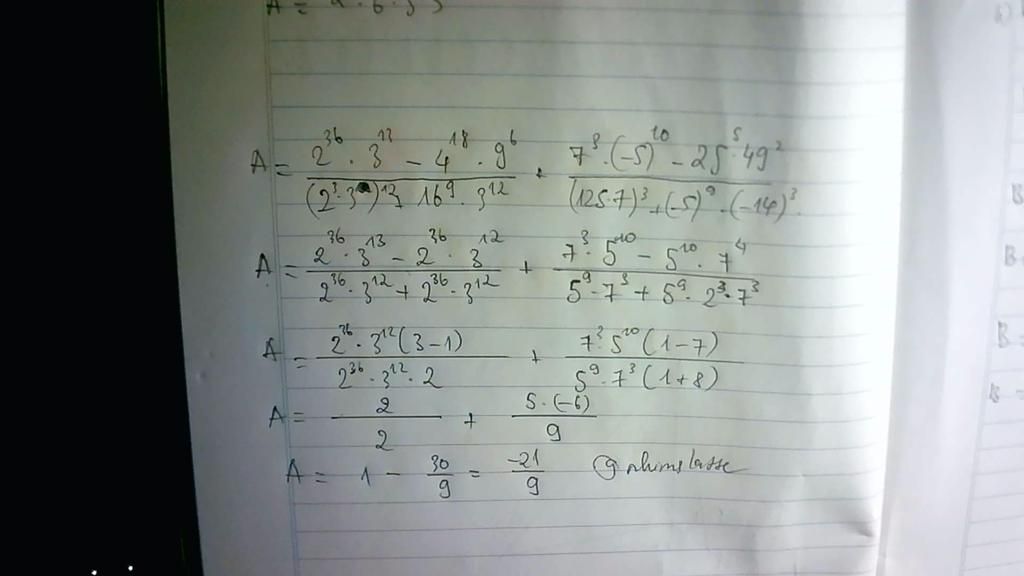 A = 2^36 · 3^13 − 4^18 · 9^6 / (2^3 · 3)^12 + 16^9 · 3^12 + 7^3 · (−5)^10 − 25^5 · 49^2 / (125·7)^3 + (−5)^9 · (−14)^3
A = 2^36 · 3^13 − 2^36 · 3^12 / 2^36 · 3^12 + 2^36 · 3^12 + 7^3 · 5^10 − 5^10 · 7^4 / 5^9 · 7^3 + 5^9 · 2^3 · 7^3
A = 2^36 · 3^12 (3 − 1) / 2^36 · 3^12 · 2 + 7^3 · 5^10 (1 − 7) / 5^9 · 7^3 (1 + 8)
A = 2 / 2 + 5 · (−6) / 9
A = 1 − 30 / 9 = −21 / 9